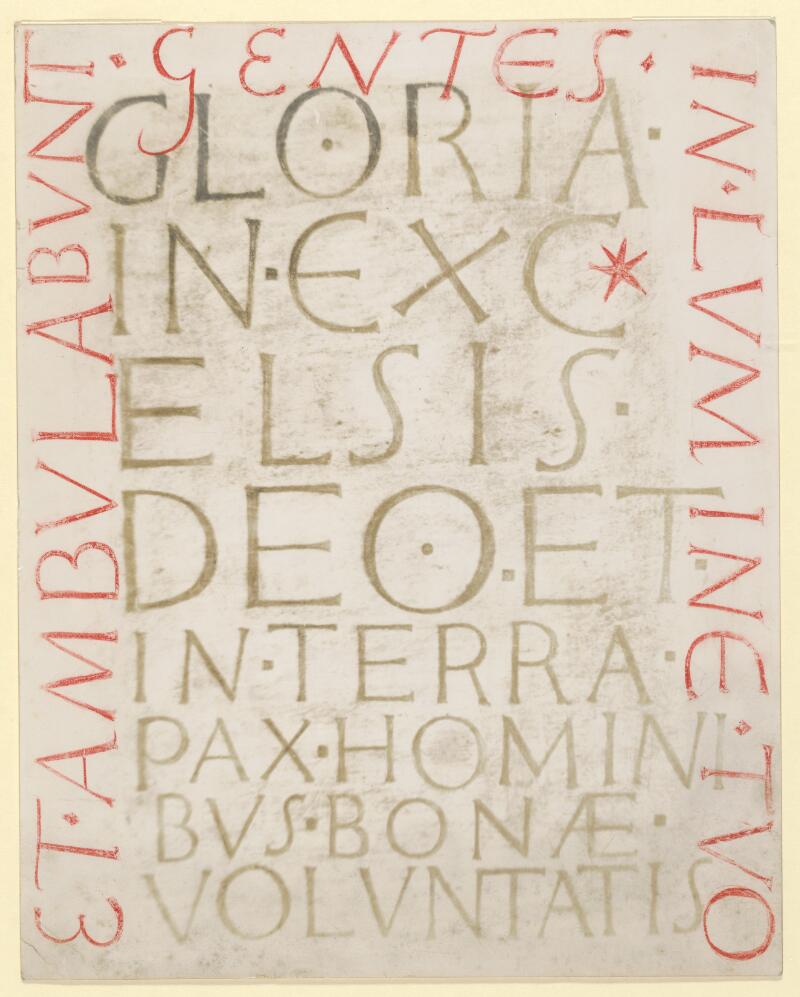 ET·AMBVLABVNT·
GENTES·
IN·LVMINE·TVO
GLORIA·
IN·EXC
ELSIS·
DEO·ET·
IN·TERRA·
PAX·HOMINI
BVS·BONÆ·
VOLVNTATIS